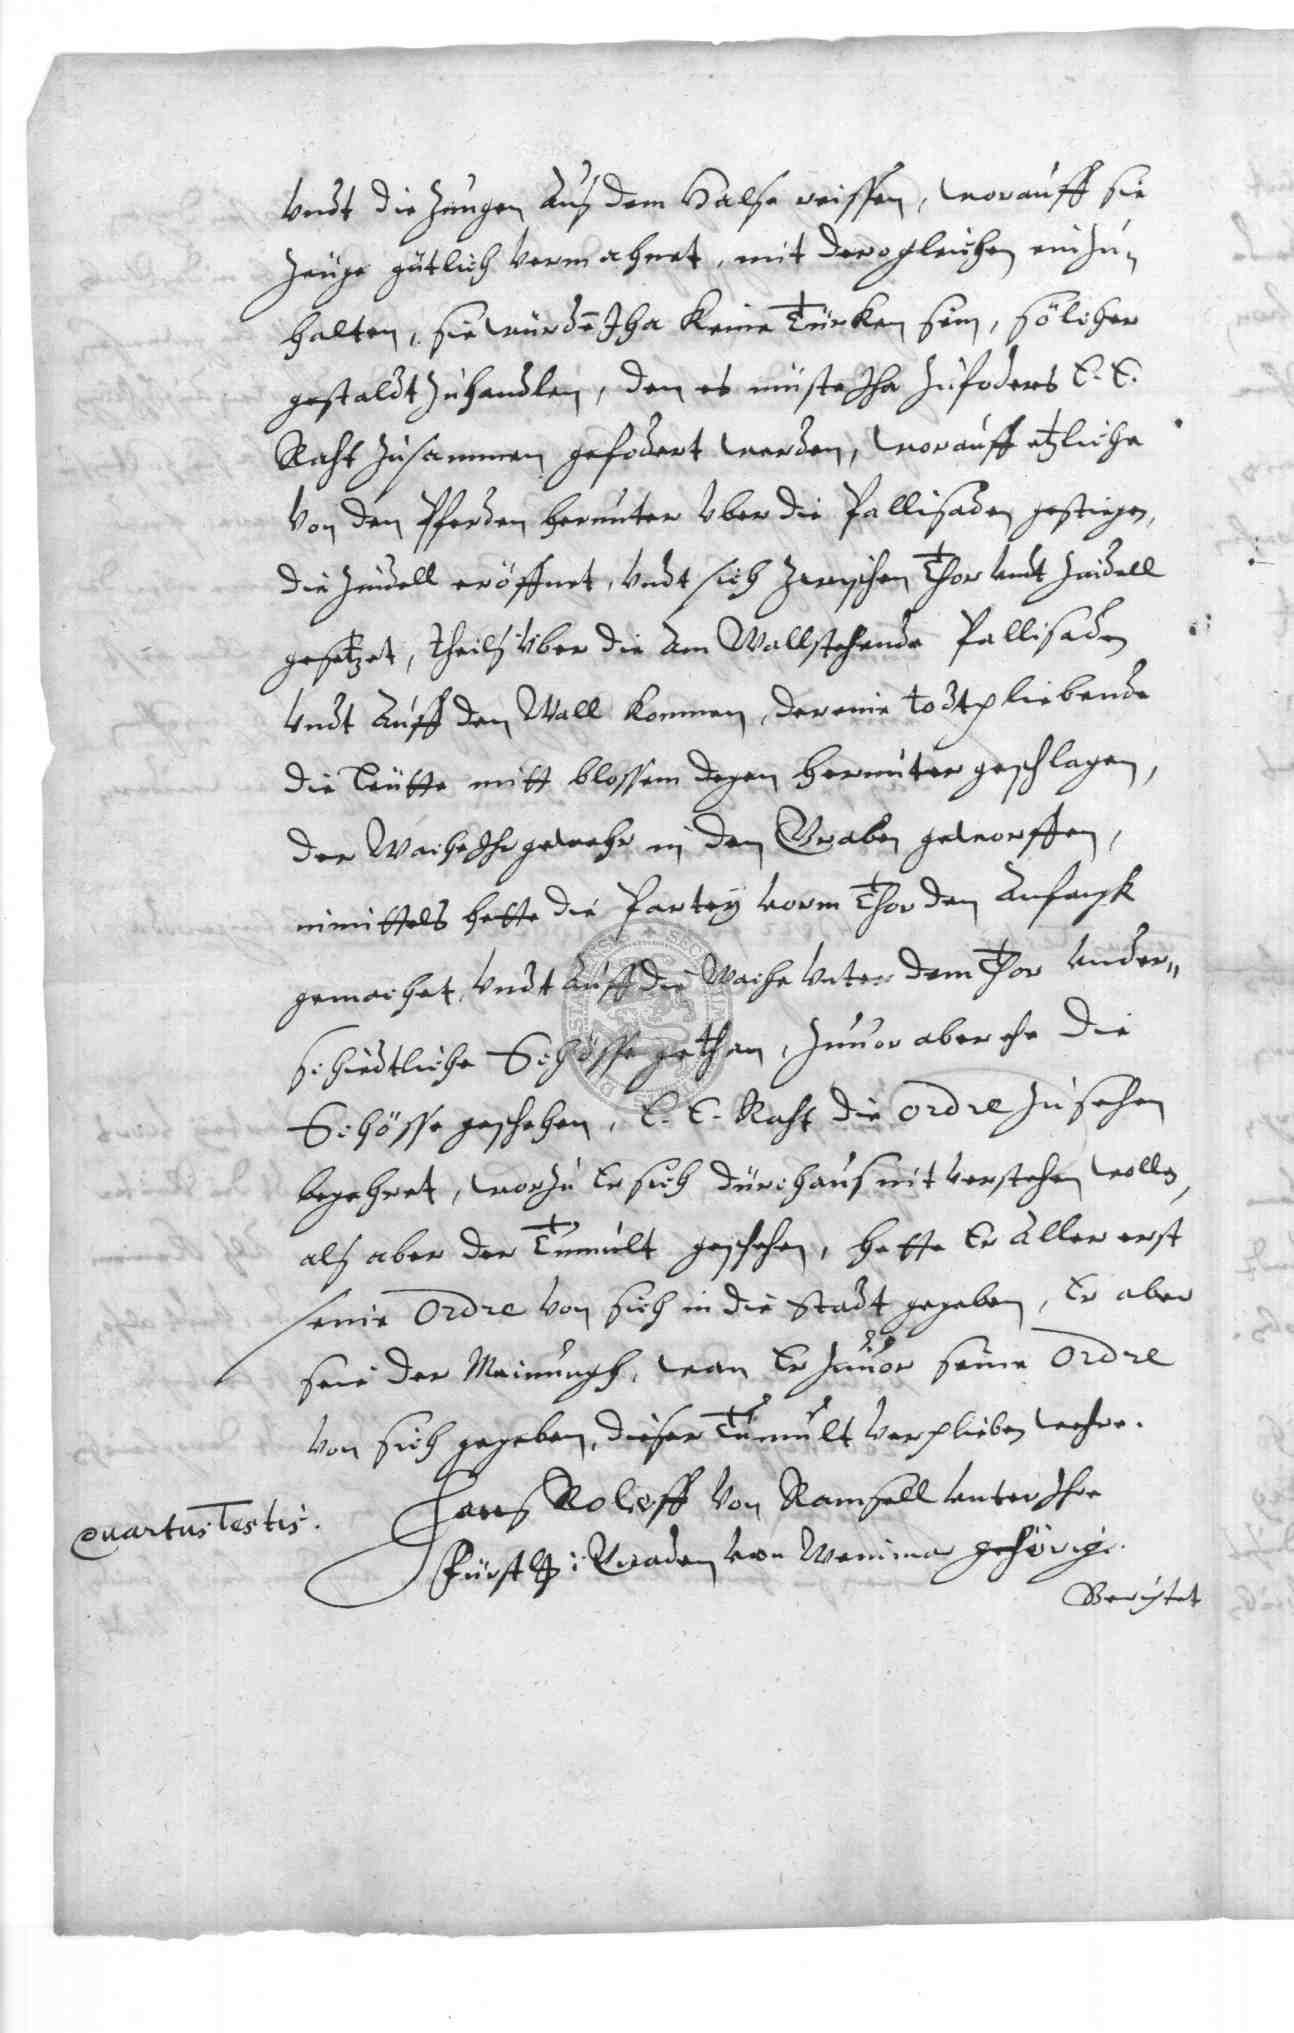 Vndt die Zungen Auß dem Halse reissen, worauff sie
Zeuge gütlich vermahnet, mit derogleichen einzu„
halten, sie würdē Jha keine Türken sein, sölicher
gestaldt zuhandlen, den es müste Jha zufoders E. E.
Raht zusammen gefodert werden, worauff etzliche
Von den Pferden herunter vber die Pallisaden gestiegen,
die Zindell eröffnet, Vndt sich zwischen Thor vndt Zindell
gesetzet, theilß vber die Am Wallstehende Pallisaden
Vndt Auff den Wall kommen, der eine todtpliebende
die Leütte mitt blossem degen herunter geschlagen,
der Wache Ihr gewehr in den Graben geworffen,
inmittels hette die Partey vorm Thor den Anfangk
gemachet, Vndt Auff die Wache vnter dem Thor vnder„
schiedtliche Schösse gethan, Zuuor aber ehe die
Schösse geschehen, E. E. Raht die ordre zu sehen
begehret, worzu Er sich dürchaus nit verstehen wollen,
alß aber der Tumult geschehen, hette Er Aller erst
seine Ordre von sich in die Stadt gegeben, Er aber
seie der Meinungh, wan Er Zuuor seine Ordre
von sich gegeben, dieser Tumult verplieben wehre.
Quartus Testis. Hanß Roleff Von Ramsell unter Ihr
Fürstl: Gnaden von Weimar gehörig.
Berichtet